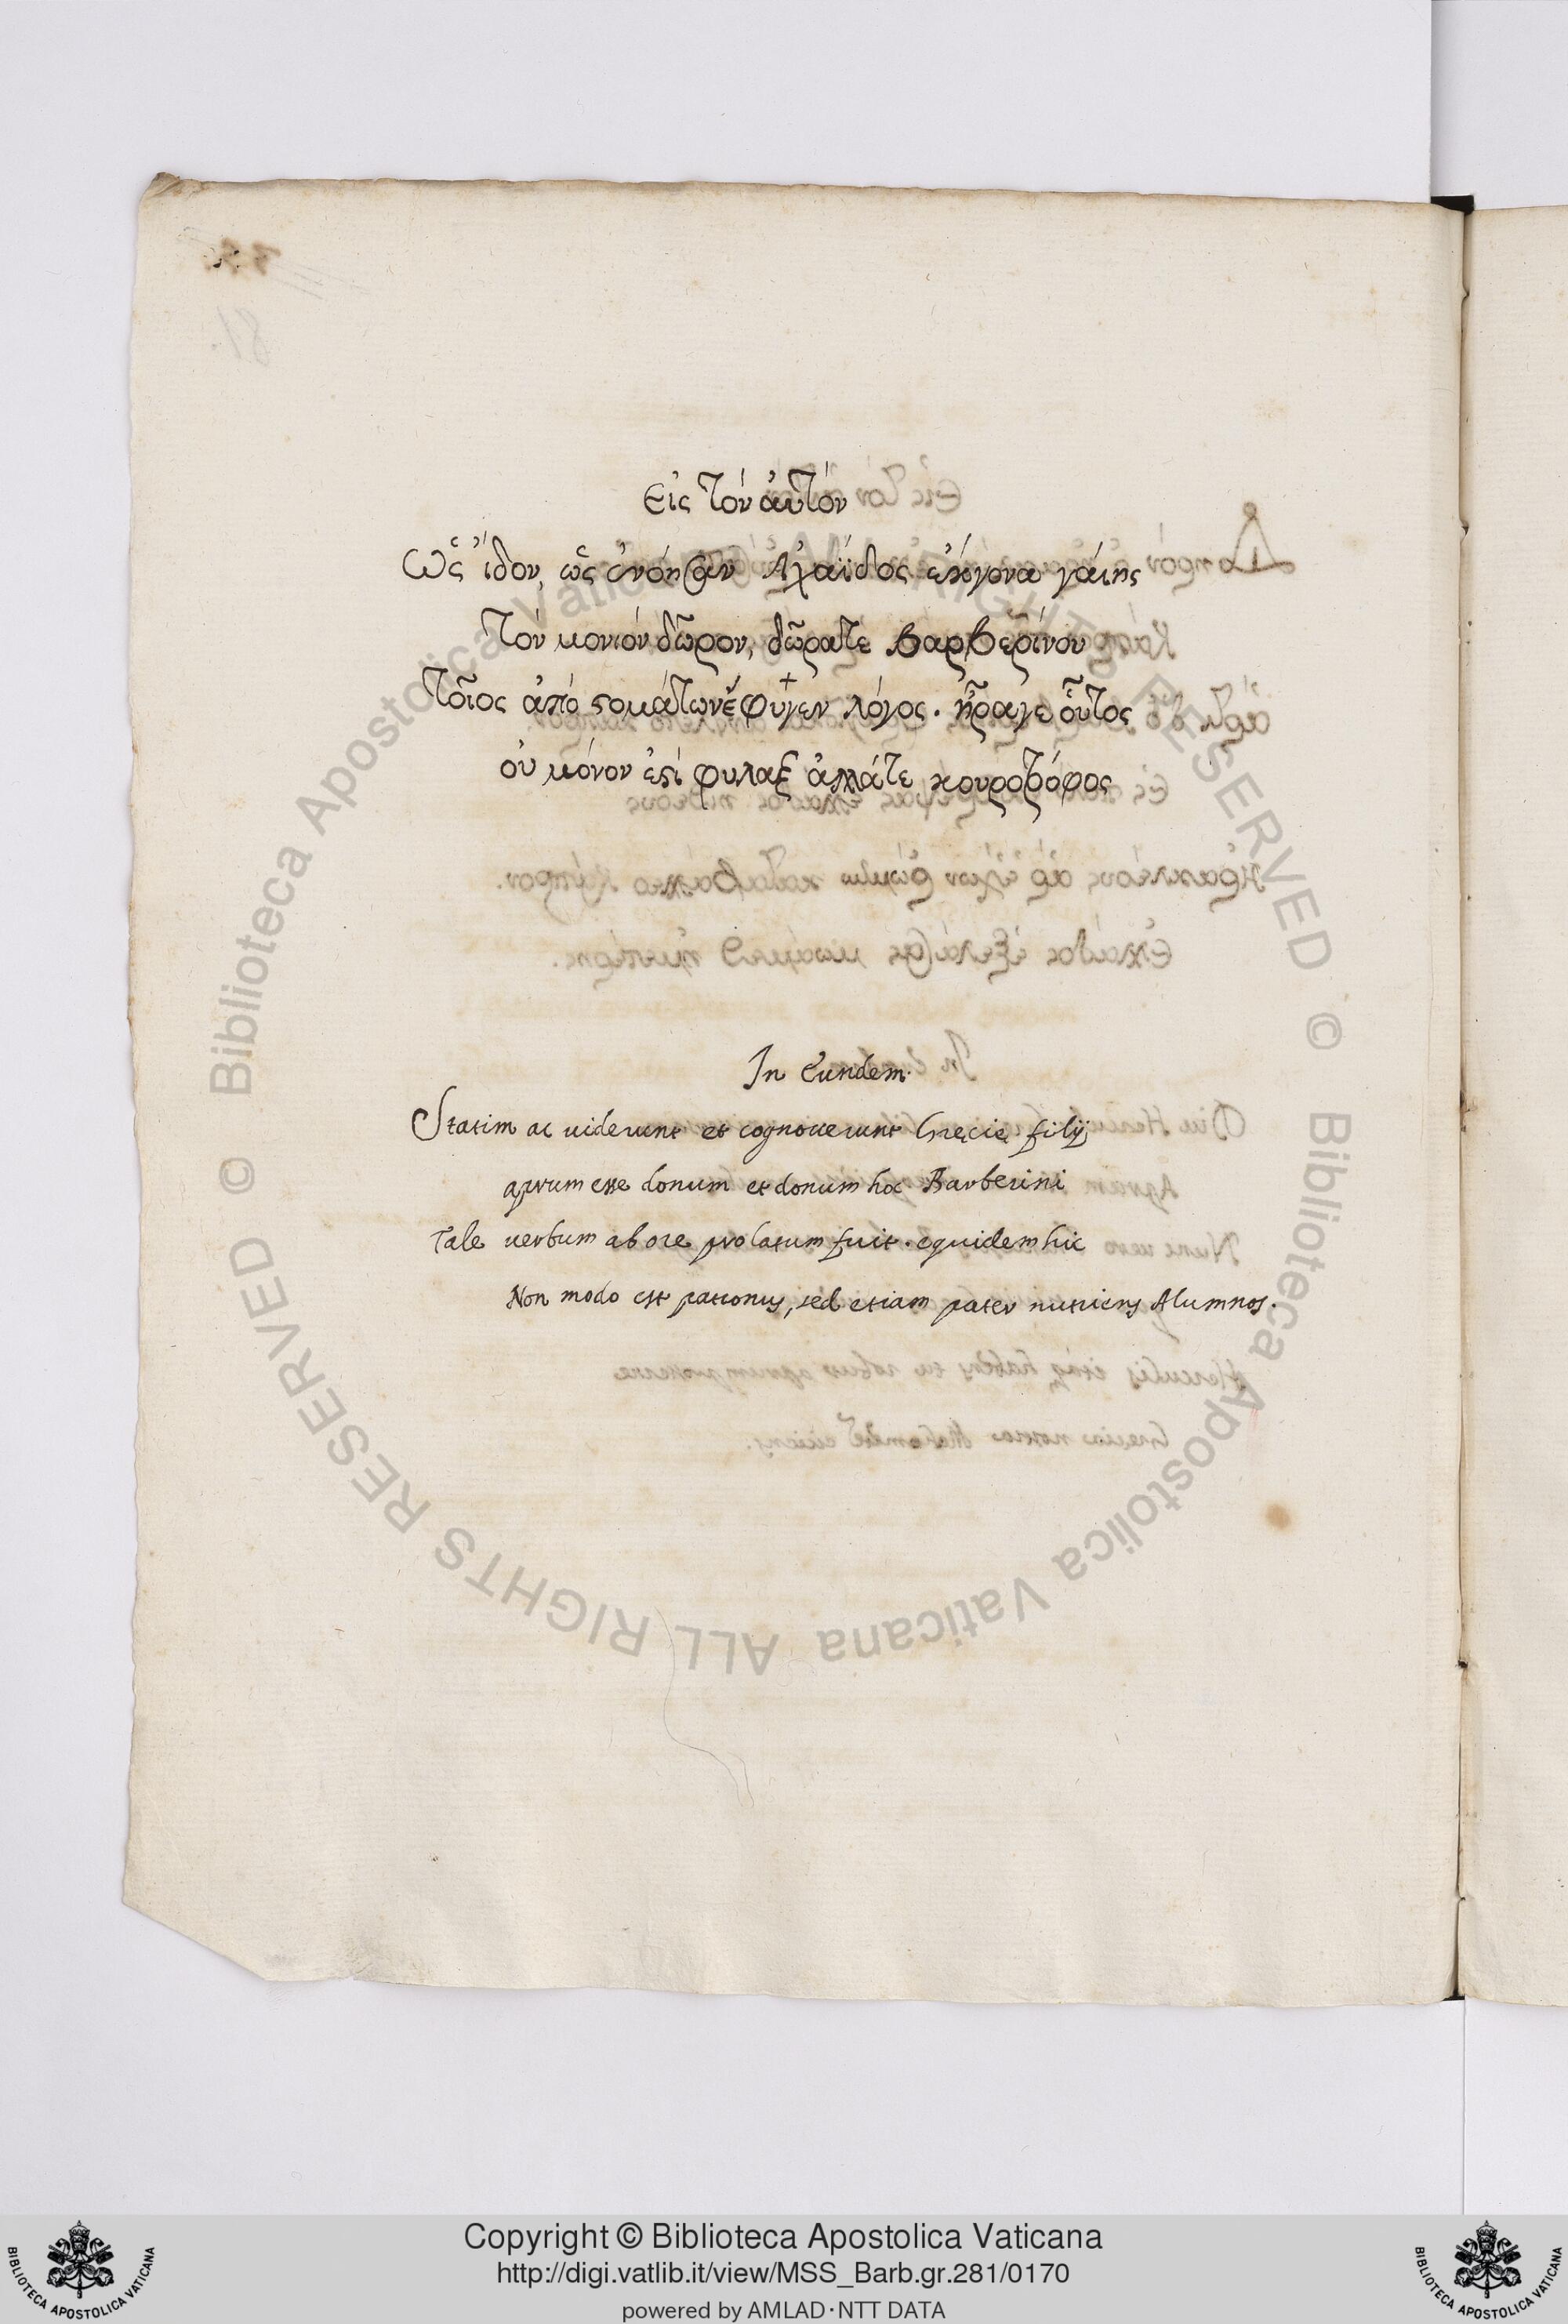 Εἰς τὸν ἀυτόν
Ὡς ἴδον, ὡς ἐνόησαν Ἀχαϊδος ἐκγονα γάιης
Τὸν μονιὸν δῶρον, δῶρατε Βαρβερίνου
Τοῖος ἀπό στομάτων ἔφυγεν λόγος. ἦραγε οὗτος
οὐ μόνον ἐστί φυλαξ ἀλλάτε κουροτρόφος
In Eundem.
Statim ac uiderunt et cognouerunt Gręcię filij
aprum esse donum et donum hoc Barberini
Tale uerbum ab ore prolatum fuit. equidem hic
Non modo est patronus, sed etiam pater nutriens Alumnos.
© Biblioteca Apostolica Vaticana ALL RIGHTS RESERVED
© Biblioteca Apostolica Vaticana ALL RIGHTS RESERVED
Copyright © Biblioteca Apostolica Vaticana
http://digi.vatlib.it/view/MSS_Barb.gr.281/0170
powered by AMLAD·NTT DATA
BIBLIOTECA APOSTOLICA VATICANA
BIBLIOTECA APOSTOLICA VATICANA